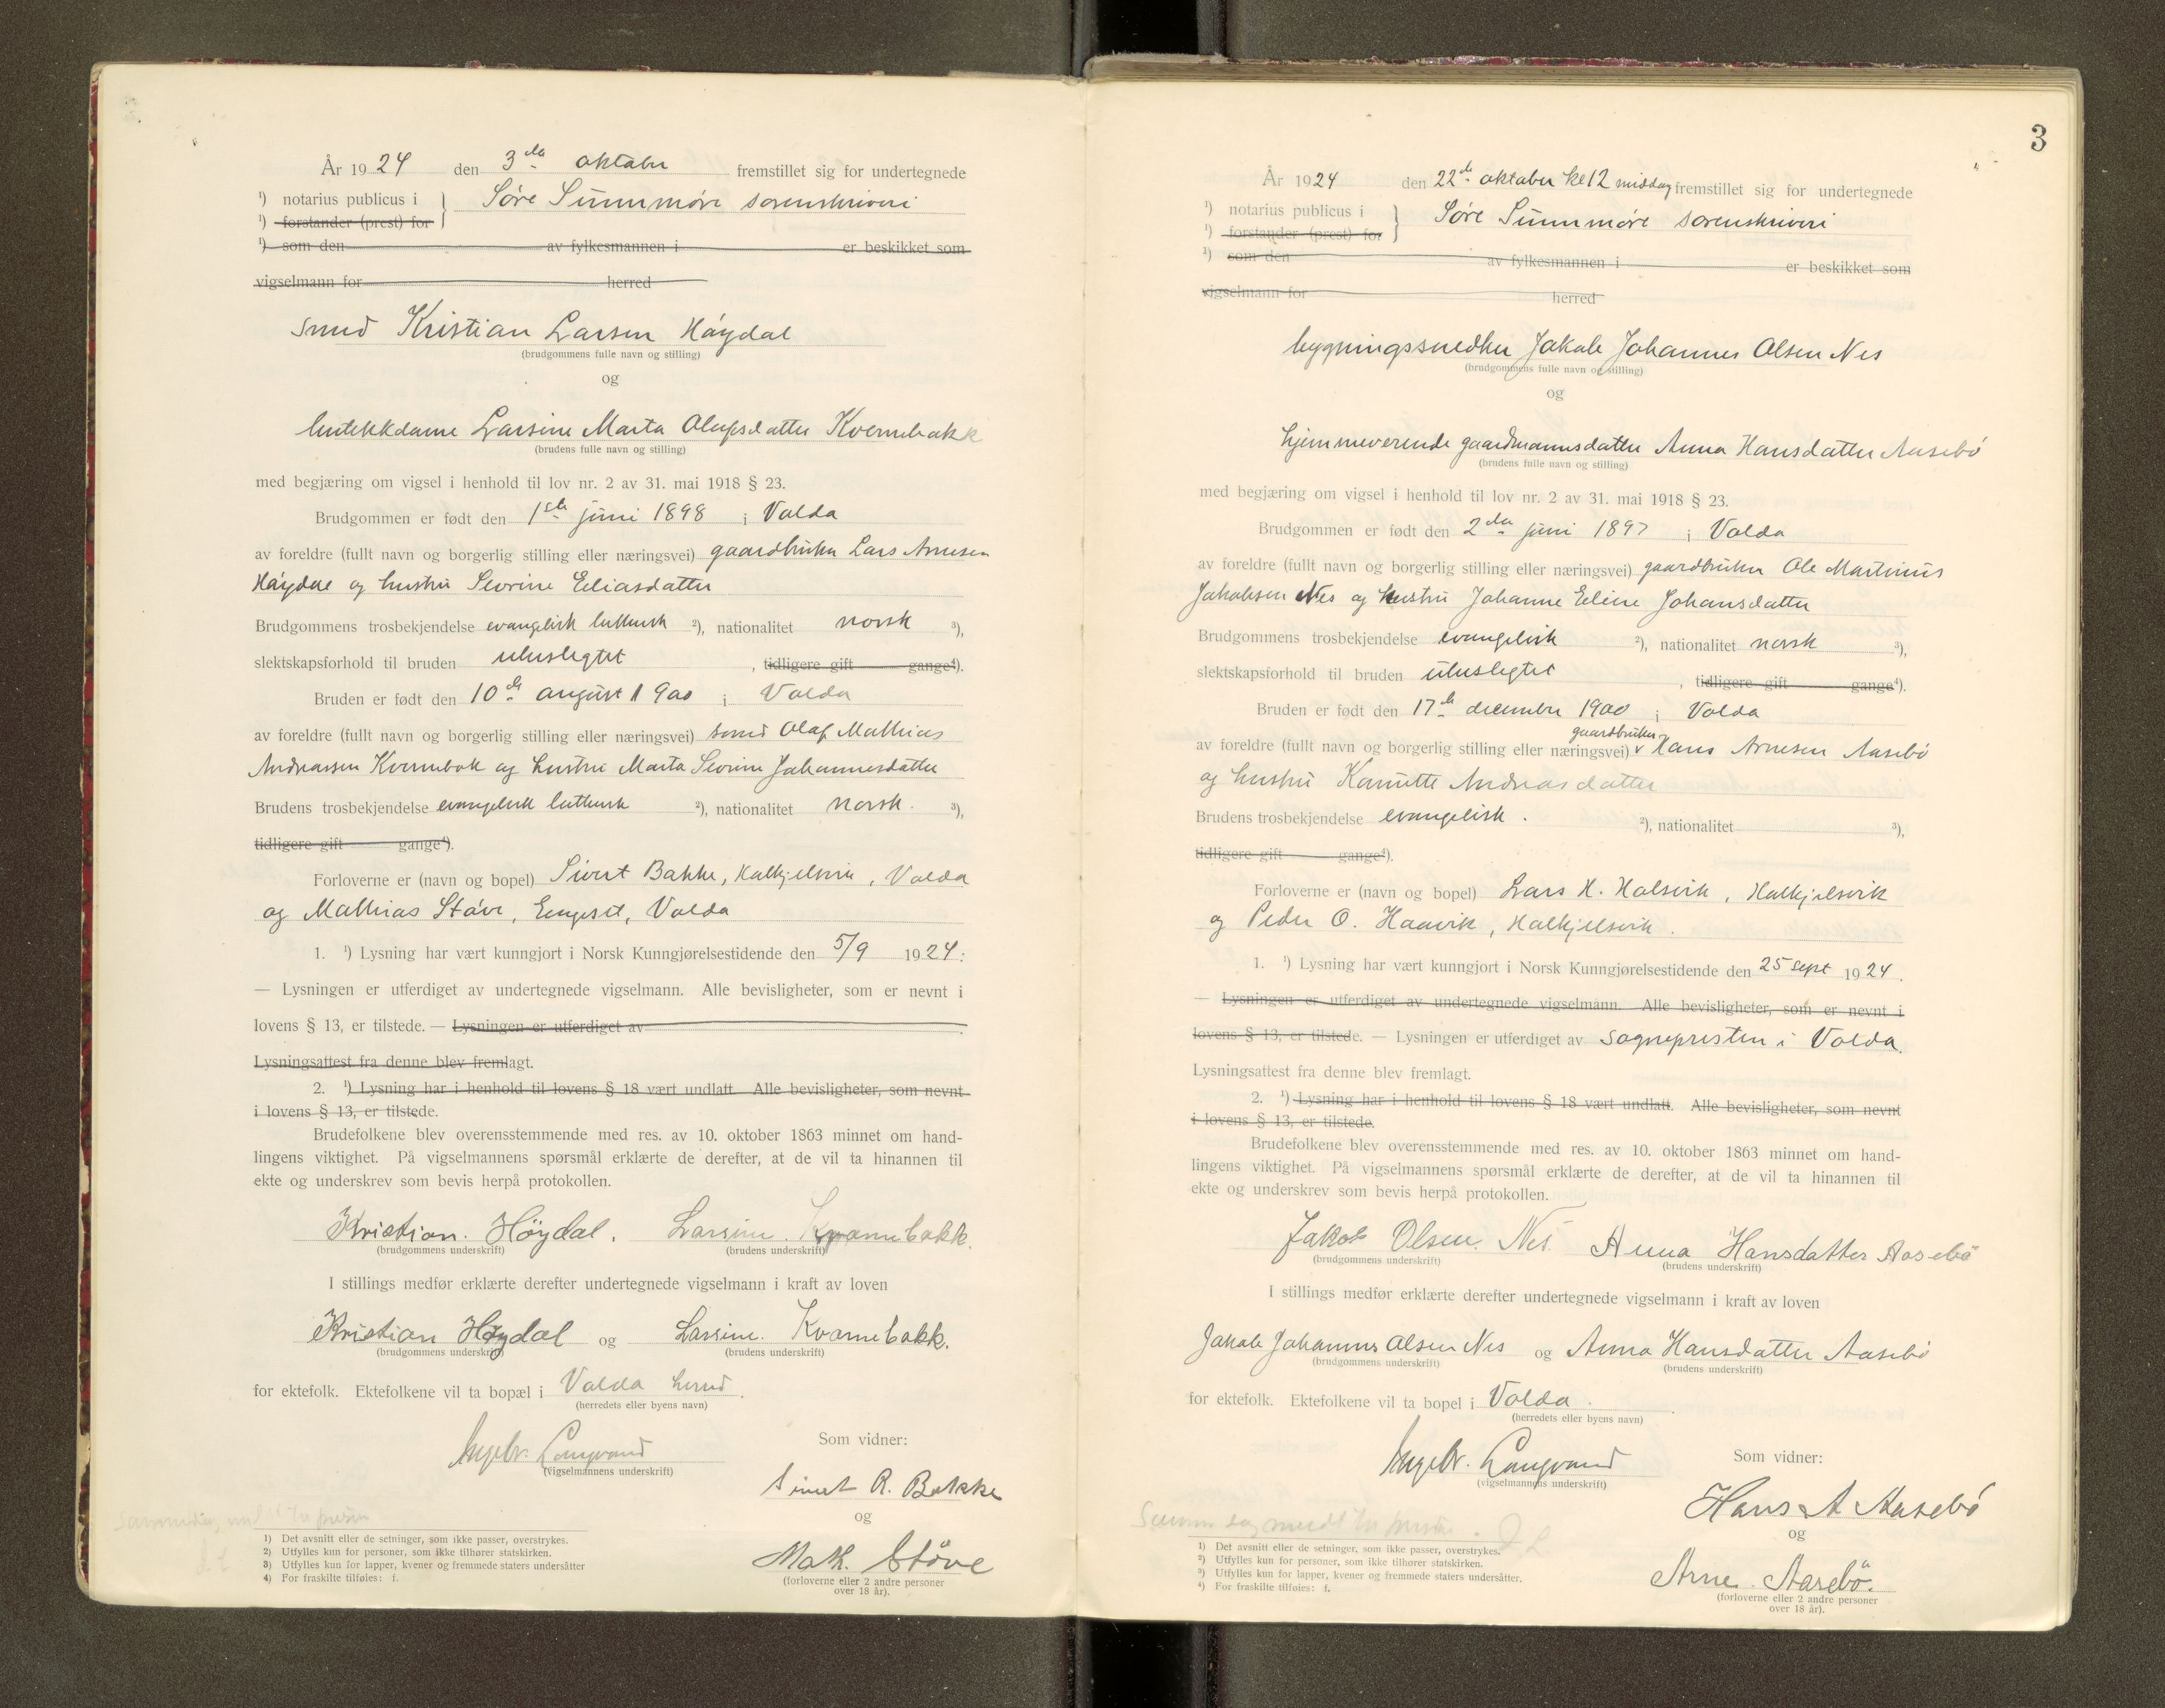 År 1924 den 3die oktober fremstillet sig for undertegnede
¹) notarius publicus i } Søre Sunnmøre sorenskriveri
¹) forstander (prest) for
¹) som den av fylkesmannen i er beskikket som
vigselmann for herred
smed Kristian Larsen Høydal
(brudgommens fulle navn og stilling)
og
butikkdame Larsine Marta Olafsdatter Kvernebakk
(brudens fulle navn og stilling)
med begjæring om vigsel i henhold til lov nr. 2 av 31. mai 1918 § 23.
Brudgommen er født den 1ste juni 1898 i Volda
av foreldre (fullt navn og borgerlig stilling eller næringsvei) gaardbruker Lars Arnesen
Høydal og hustru Sevrine Eeliasdatter
Brudgommens trosbekjendelse evangelisk luthersk ²), nationalitet norsk ³),
slektskapsforhold til bruden ubeslegtet , tidligere gift gange⁴).
Bruden er født den 10de august 1900 i Volda
av foreldre (fullt navn og borgerlig stilling eller næringsvei) smed Olaf Mathias
Andreassen Kvernebak og hustru Marta Sevrine Johannesdatter
Brudens trosbekjendelse evangelisk luthersk ²), nationalitet norsk. ³),
tidligere gift gange⁴).
Forloverne er (navn og bopel) Sivert Bakke, Halkjelsvik, Volda
og Mathias Støve, Engeset, Volda
1. ¹) Lysning har vært kunngjort i Norsk Kunngjørelsestidende den 5/9 1924:
— Lysningen er utferdiget av undertegnede vigselmann. Alle bevisligheter, som er nevnt i
lovens § 13, er tilstede. — Lysningen er utferdiget av .
Lysningsattest fra denne blev fremlagt.
2. ¹) Lysning har i henhold til lovens § 18 vært undlatt Alle bevisligheter, som nevnt
i lovens § 13, er tilstede.
Brudefolkene blev overensstemmende med res. av 10. oktober 1863 minnet om hand-
lingens viktighet. På vigselmannens spørsmål erklærte de derefter, at de vil ta hinannen til
ekte og underskrev som bevis herpå protokollen.
Kristian. Høydal. Larsine. Kvamebakk.
(brudgommens underskrift) (brudens underskrift)
I stillings medfør erklærte derefter undertegnede vigselmann i kraft av loven
Kristian Høydal og Larsine. Kvamebakk.
(brudgommens underskrift) (brudens underskrift)
for ektefolk. Ektefolkene vil ta bopæl i Volda herred.
(herredets eller byens navn)
Ingebr. Langvand
(vigselmannens underskrift)
Som vidner:
Sivert R. Bakke
og
Math. Støve
(forloverne eller 2 andre personer
over 18 år).
¹) Det avsnitt eller de setninger, som ikke passer, overstrykes.
²) Utfylles kun for personer, som ikke tilhører statskirken.
³) Utfylles kun for lapper, kvener og fremmede staters undersåtter
⁴) For fraskilte tilføies: f.
3
År 1924 den 22de oktober kl 12 middag fremstillet sig for undertegnede
¹) notarius publicus i } Søre Sunnmøre sorenskriveri
¹) forstander (prest) for
¹) som den av fylkesmannen i er beskikket som
vigselmann for herred
bygningssnedker Jakob Johannes Olsen Nes
(brudgommens fulle navn og stilling)
og
hjemmeverende gaardmannsdatter Anna Hansdatter Aasebø
(brudens fulle navn og stilling)
med begjæring om vigsel i henhold til lov nr. 2 av 31. mai 1918 § 23.
Brudgommen er født den 2den juni 1897 i Volda
av foreldre (fullt navn og borgerlig stilling eller næringsvei) gaardbruker Ole Martinus
Jakobsen Nes og hustru Johanne Eeline Johansdatter
Brudgommens trosbekjendelse evangelisk ²), nationalitet norsk ³),
slektskapsforhold til bruden ubeslegtet , tidligere gift gange⁴).
Bruden er født den 17de december 1900 i Volda
av foreldre (fullt navn og borgerlig stilling eller næringsvei) gaardbruker Hans Arnesen Aasebø
og hustru Kanutte Andreasdatter
Brudens trosbekjendelse evangelisk. ²), nationalitet ³),
tidligere gift gange⁴).
Forloverne er (navn og bopel) Lars H. Halsvik, Halkjelsvik
og Peder O. Haavik, Halkjelsvik.
1. ¹) Lysning har vært kunngjort i Norsk Kunngjørelsestidende den 25 sept 1924.
— Lysningen er utferdiget av undertegnede vigselmann. Alle bevisligheter, som er nevnt i
lovens § 13, er tilstede. — Lysningen er utferdiget av sognepresten i Volda.
Lysningsattest fra denne blev fremlagt.
2. ¹) Lysning har i henhold til lovens § 18 vært undlatt. Alle bevisligheter, som nevnt
i lovens § 13, er tilstede.
Brudefolkene blev overensstemmende med res. av 10. oktober 1863 minnet om hand-
lingens viktighet. På vigselmannens spørsmål erklærte de derefter, at de vil ta hinannen til
ekte og underskrev som bevis herpå protokollen.
Jakob Olsen. Nes. Anna Hansdatter Aasebø
(brudgommens underskrift) (brudens underskrift)
I stillings medfør erklærte derefter undertegnede vigselmann i kraft av loven
Jakob Johannes Olsen Nes og Anna Hansdatter Aasebø
(brudgommens underskrift) (brudens underskrift)
for ektefolk. Ektefolkene vil ta bopel i Volda.
(herredets eller byens navn)
Ingebr. Langvand
(vigselmannens underskrift)
Som vidner:
Hans A Aasebø
og
Arne. Aasebø.
(forloverne eller 2 andre personer
over 18 år).
¹) Det avsnitt eller de setninger, som ikke passer, overstrykes.
²) Utfylles kun for personer, som ikke tilhører statskirken.
³) Utfylles kun for lapper, kvener og fremmede staters undersåtter.
⁴) For fraskilte tilføies: f.